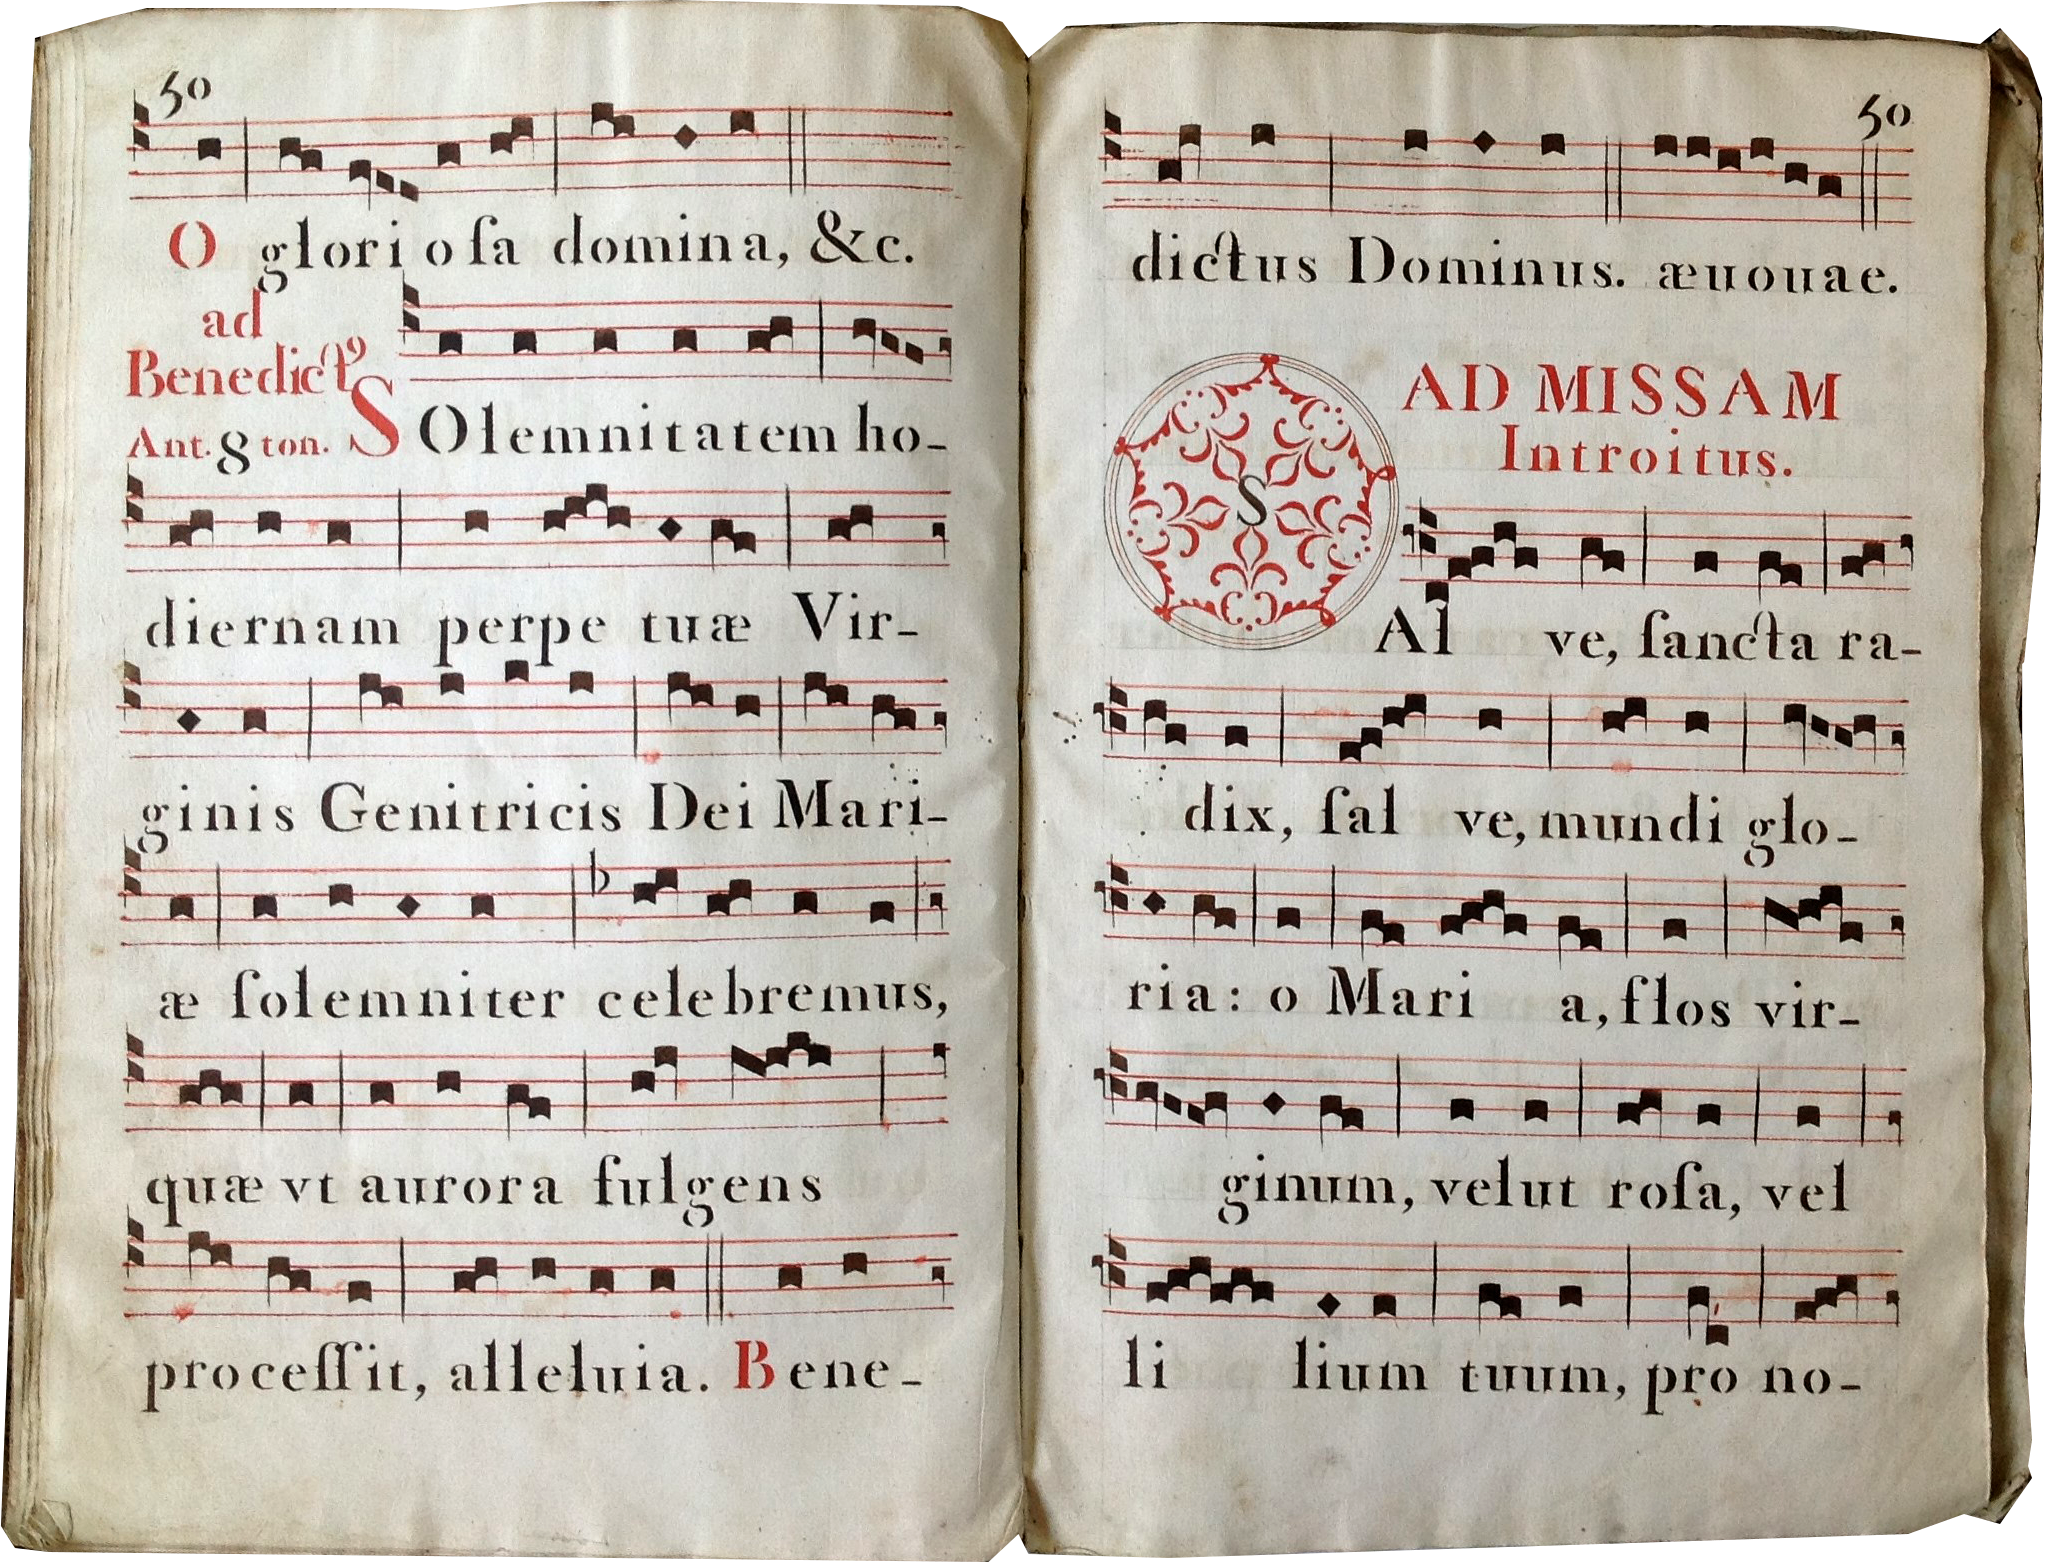 50
O glorioſa domina, &c.
ad
Benedictꝰ
Ant. 8 ton. SOlemnitatem ho-
diernam perpetuæ Vir-
ginis Genitricis Dei Mari-
æ ſolemniter celebremus,
quæ vt aurora fulgens
proceſſit, alleluia. Bene-
50
dictus Dominus. æuouae.
AD MISSAM
Introitus.
SAlve, ſancta ra-
dix, ſalve, mundi glo-
ria: o Maria, flos vir-
ginum, velut roſa, vel
lilium tuum, pro no-